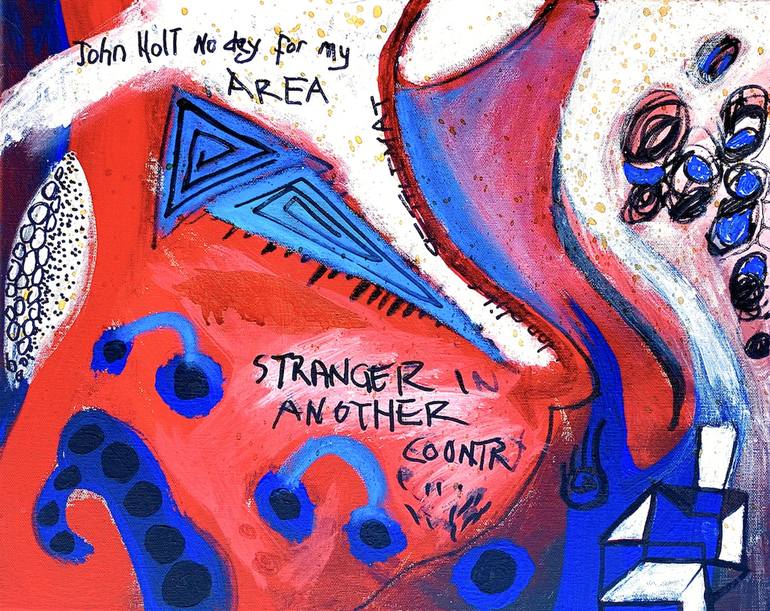 John HolT No dey for my
AREA
STRANGER IN
ANOTHER
COONTR